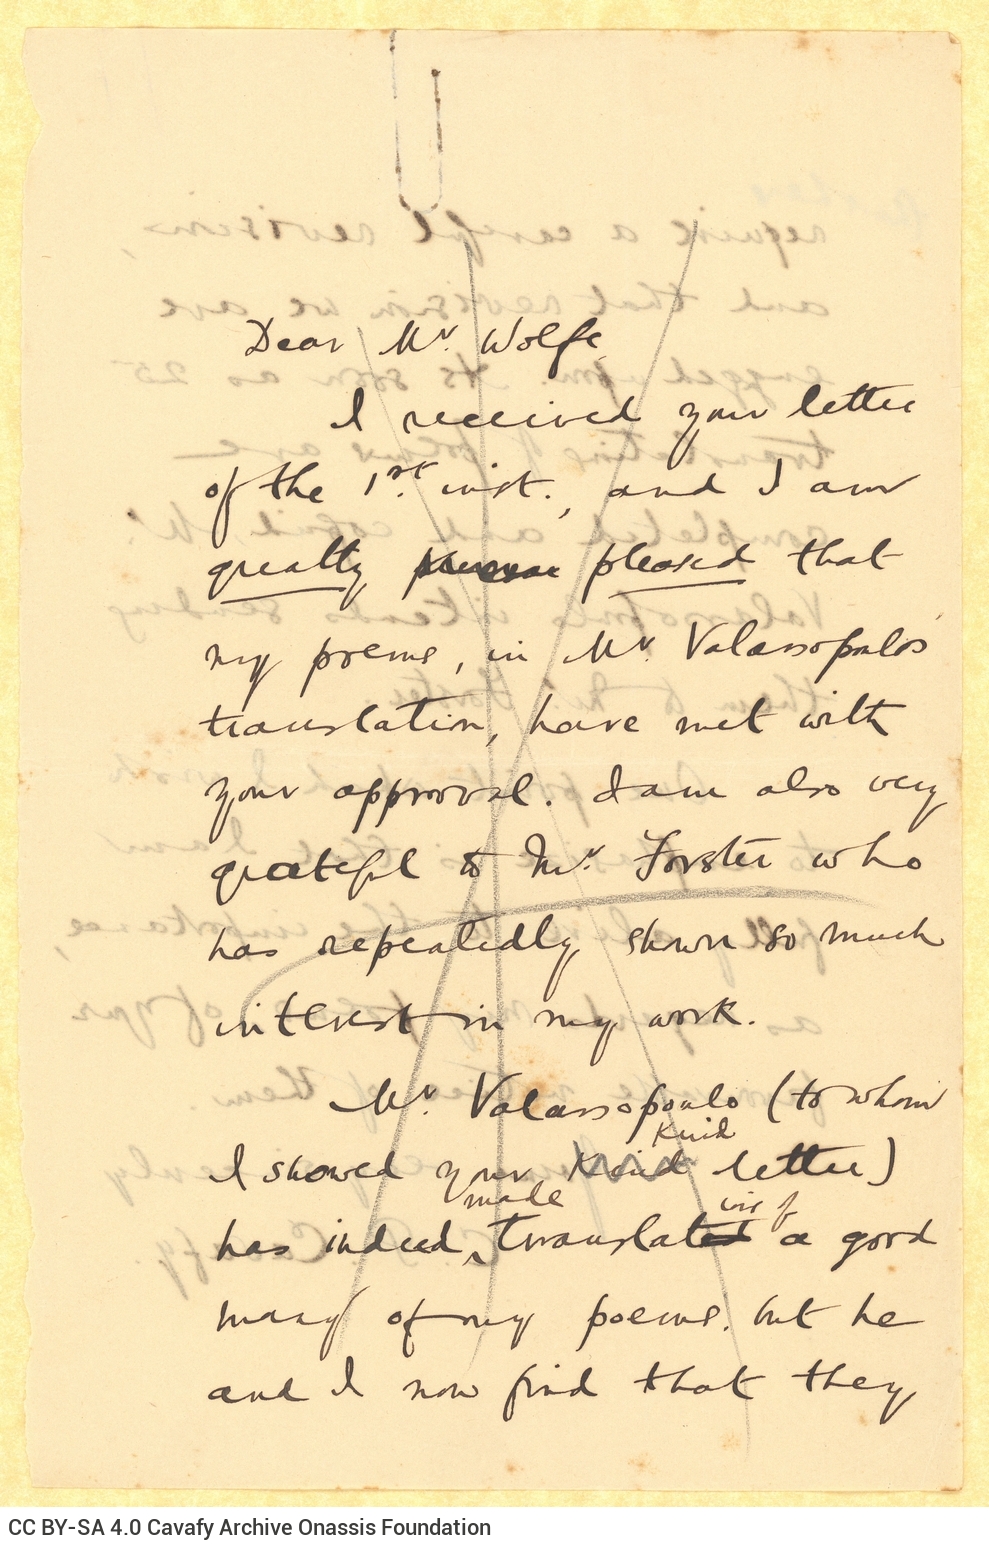 Dear Mr. Wolfe
I received your letter
of the 1st. inst., and I am
greatly pleased that
my poems, in Mr. Valassopulo's
translation, have met with
your approval. I am also very
grateful to Mr. Forster who
has repeatedly shown so much
interest in my work.
Mr. Valassopoulo (to whom
kind
I showed your kind letter)
made ions of
has indeed, translated a good
many of my poems. but he
and I now find that they
CC BY-SA 4.0 Cavafy Archive Onassis Foundation